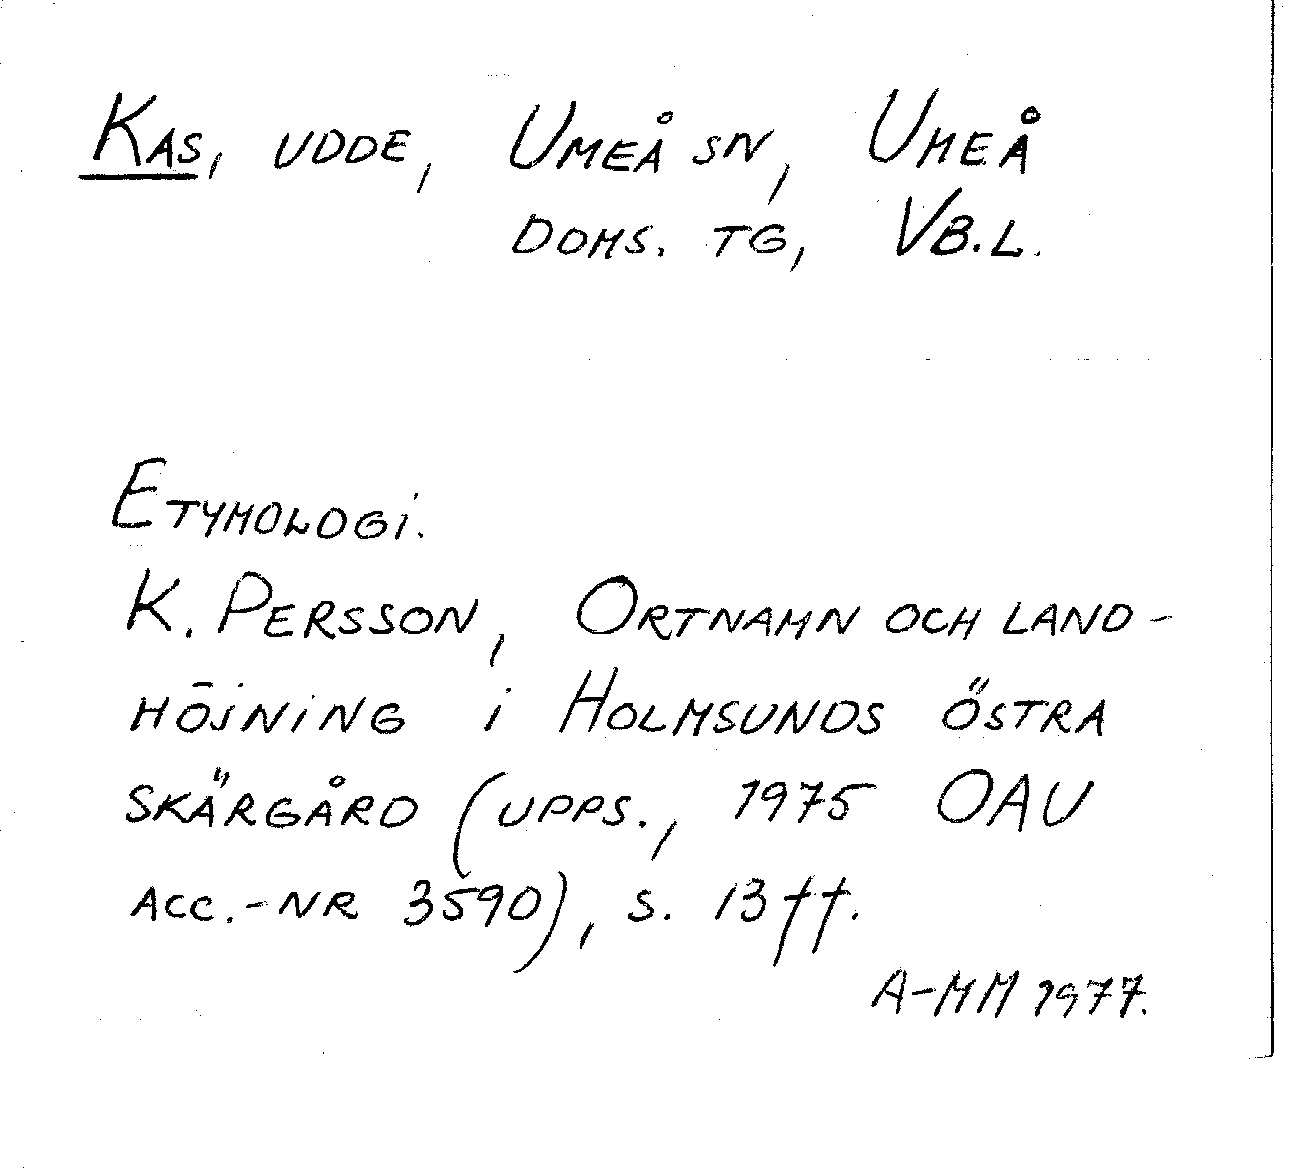 Kas, udde, Umeå sn, Umeå
doms. tg, Vb.l.
Etymologi.
K. Persson, Ortnamn och land-
höjning i Holmsunds östra
skärgård (upps., 1975 OAU
acc.-nr 3590), s. 13 ff.
A-MM 1977.